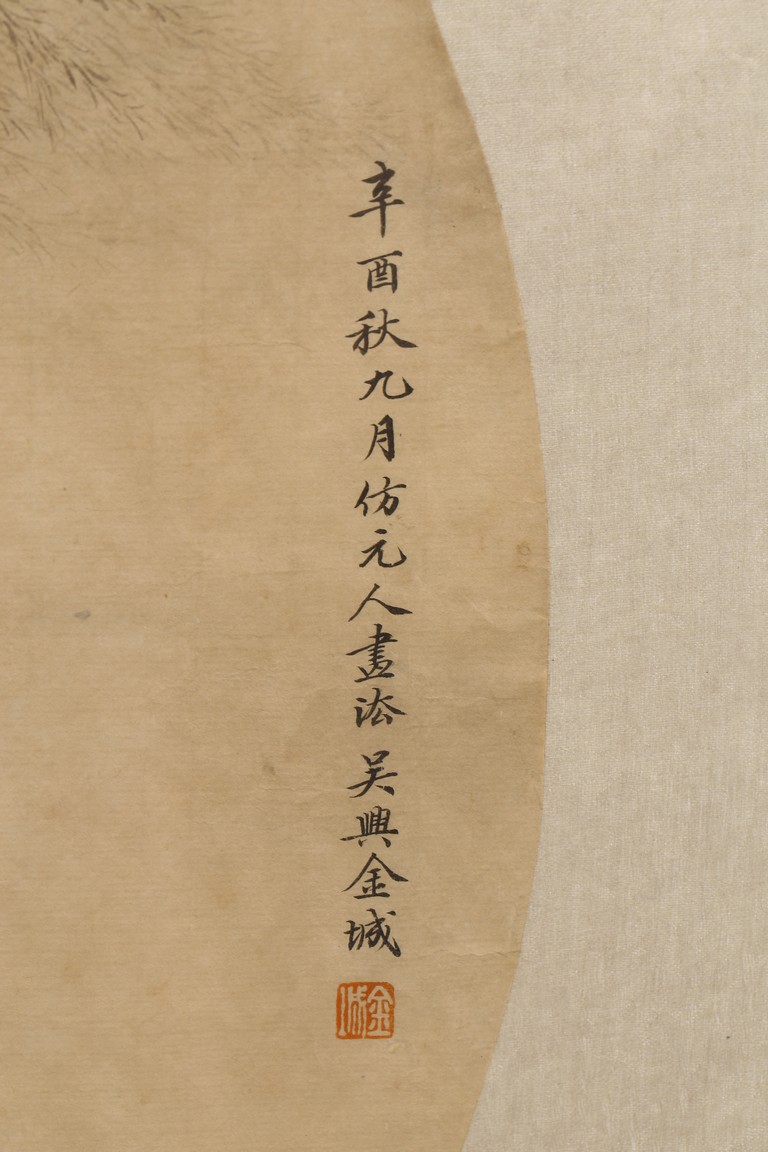 辛酉秋九月仿元人畫法吳興金城
金城